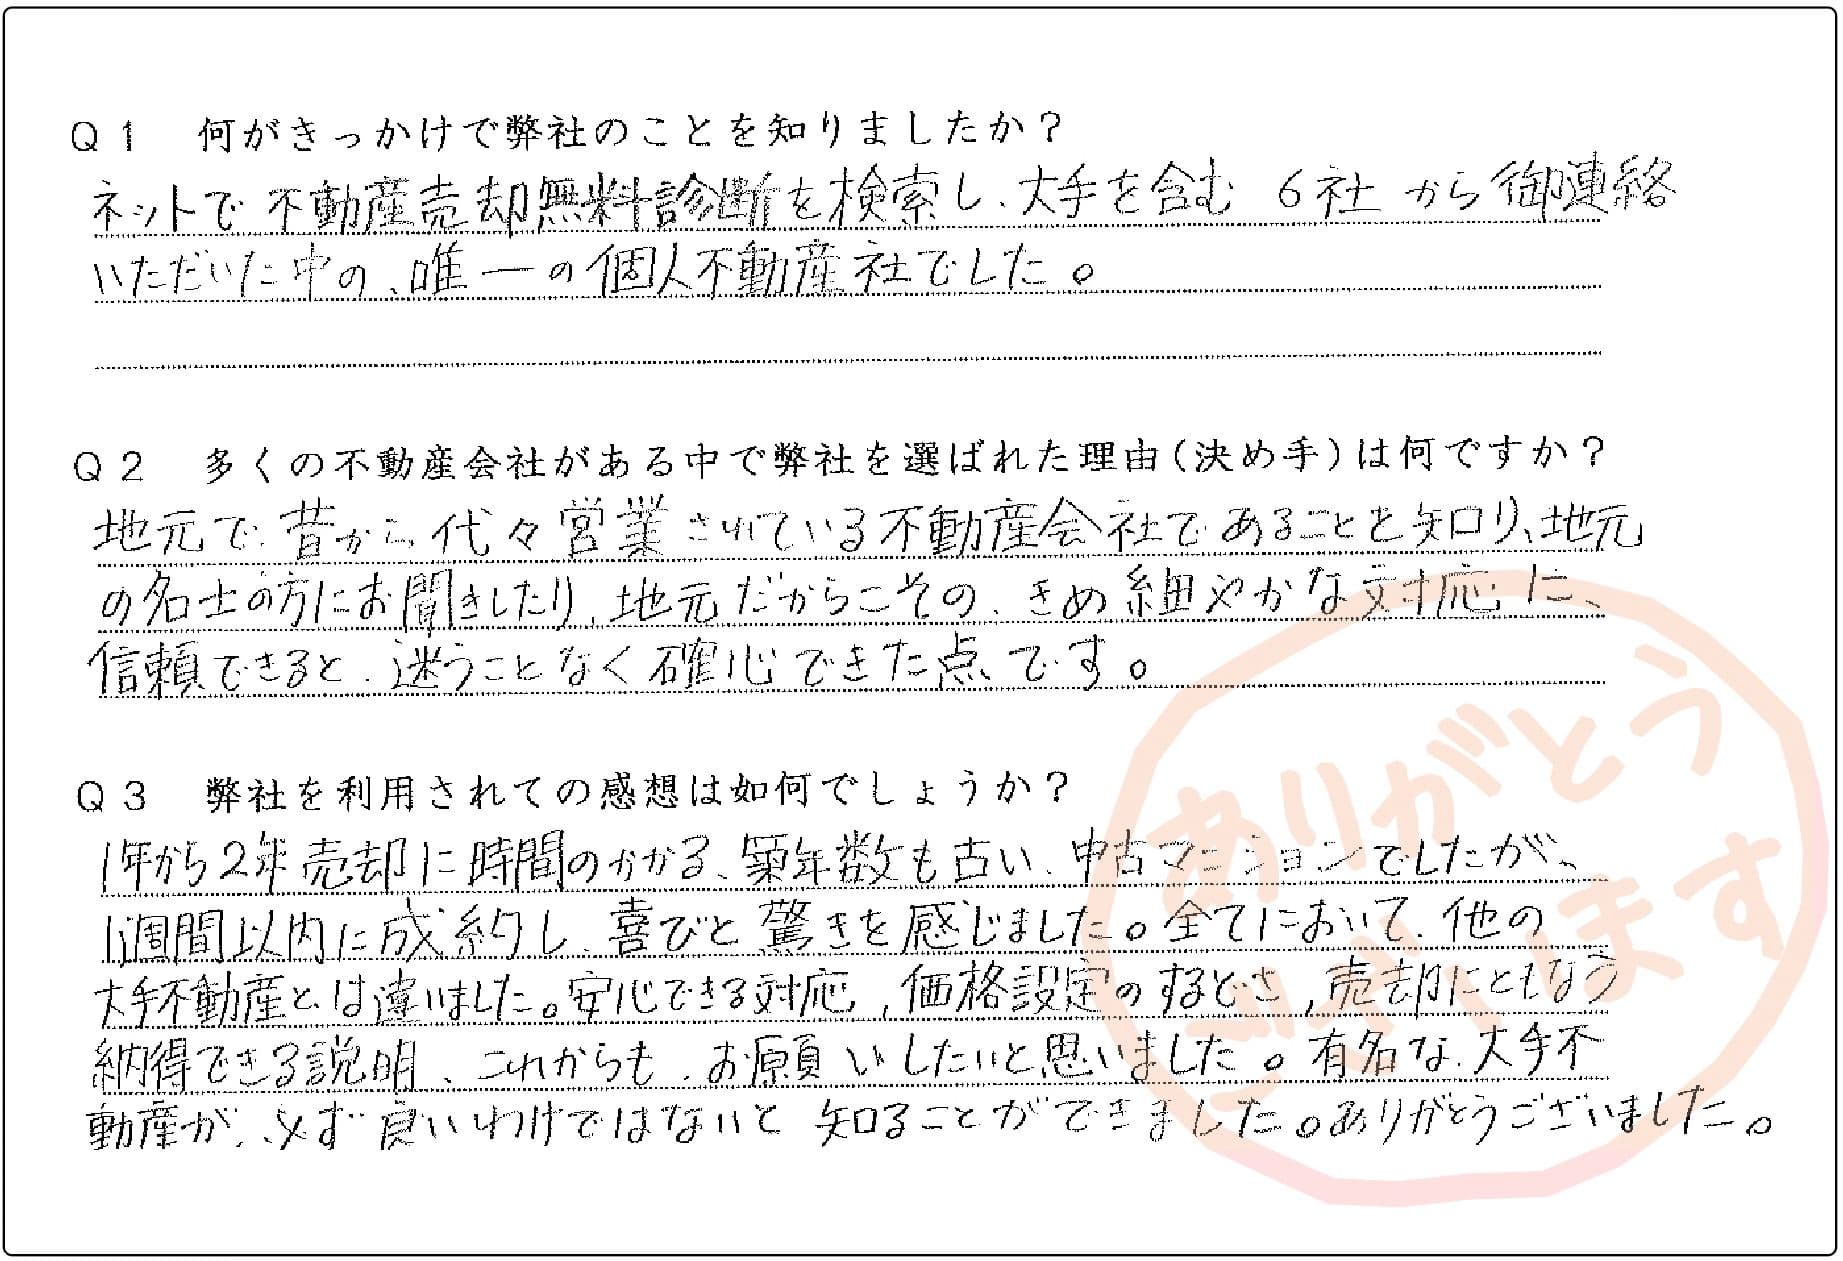 Q1 何がきっかけで弊社のことを知りましたか？
ネットで不動産売却無料診断を検索し、大手を含む 6社から御連絡
いただいた中の、唯一の個人不動産社でした。
Q2 多くの不動産会社がある中で弊社を選ばれた理由(決め手)は何ですか？
地元で、昔から代々営業されている不動産会社であることを知り、地元
の名士の方にお聞きしたり、地元だからこその、きめ細やかな対応に、
信頼できると、迷うことなく確心できた点です。
Q3 弊社を利用されての感想は如何でしょうか？
1年から2年売却に時間のかかる、築年数も古い、中古マンションでしたが、
1週間以内に成約し、喜びと驚きを感じました。全てにおいて、他の
大手不動産とは違いました。安心できる対応、価格設定のするどさ、売却にともなう
納得できる説明、これからも、お願いしたいと思いました。有名な、大手不
動産が、必ず良いわけではないと知ることができました。ありがとうございました。
ありがとう
ございます